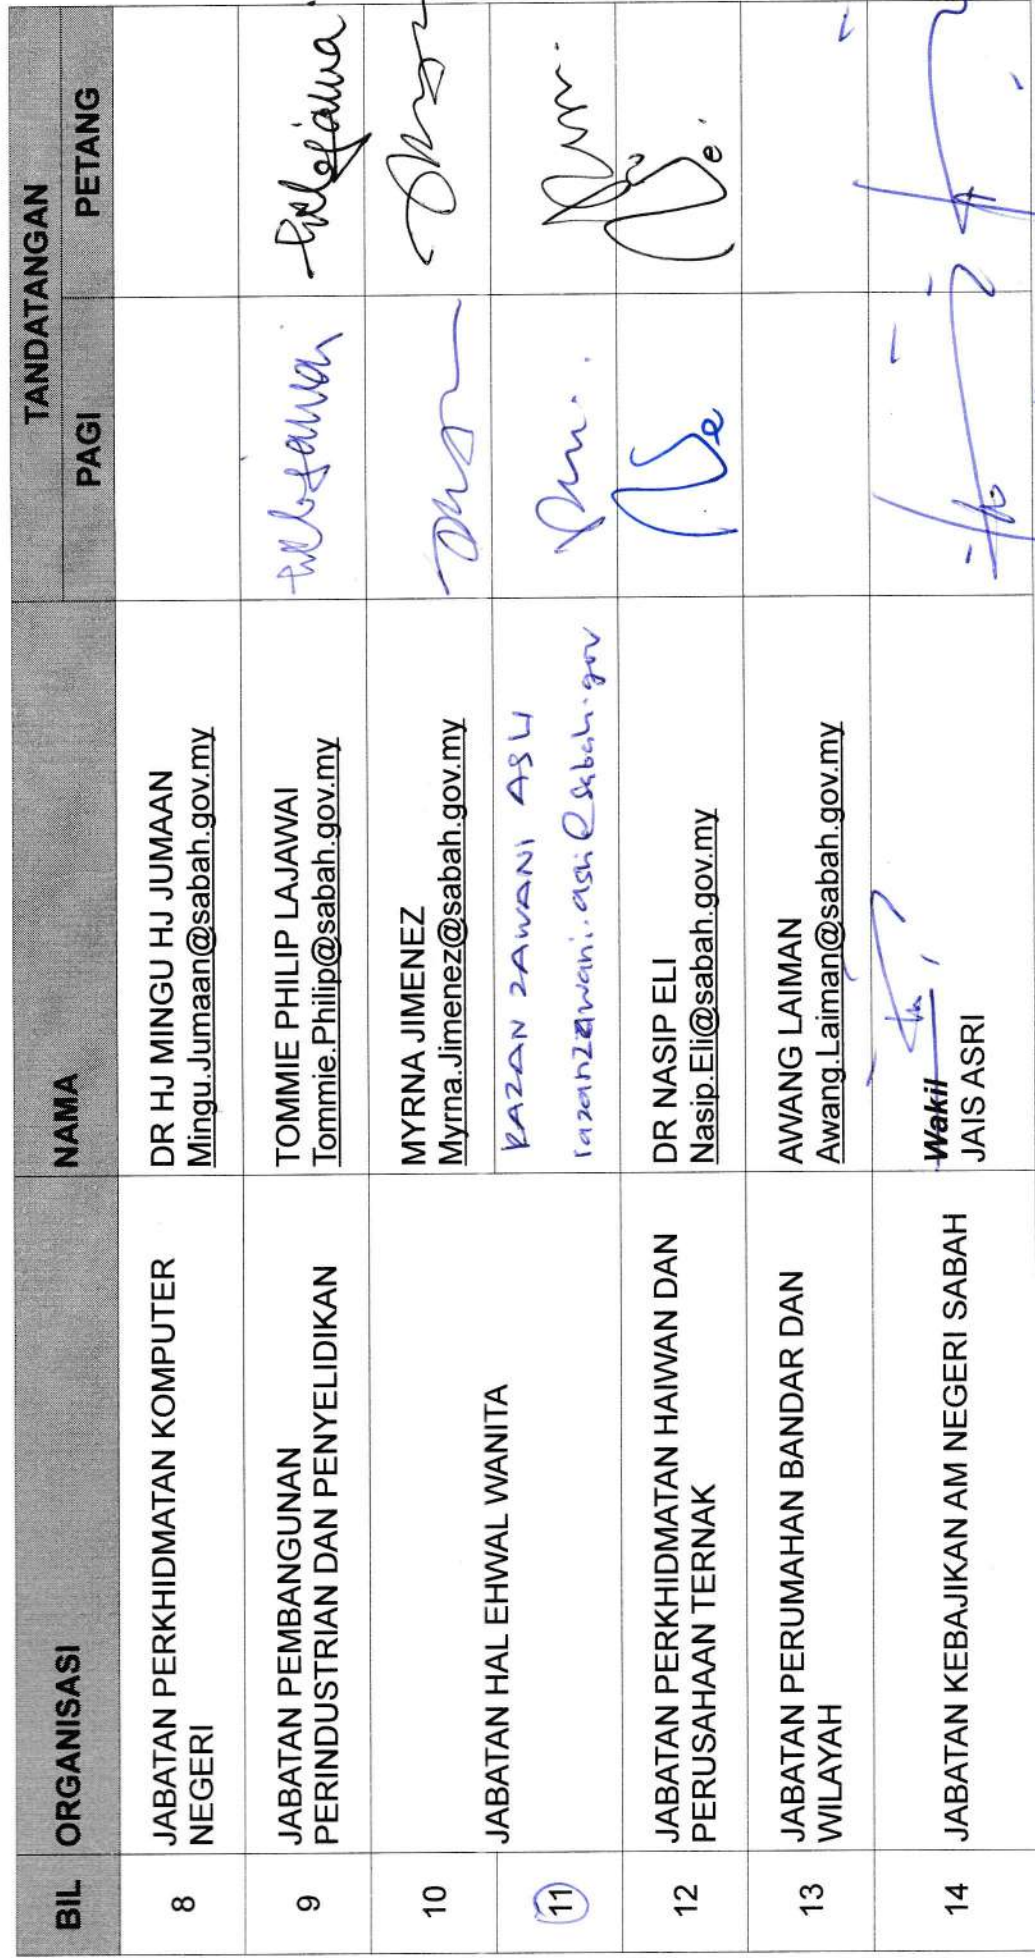 BIL ORGANISASI NAMA TANDATANGAN
PAGI PETANG
8 JABATAN PERKHIDMATAN KOMPUTER
NEGERI
DR HJ MINGU HJ JUMAAN
Mingu.Jumaan@sabah.gov.my
9 JABATAN PEMBANGUNAN
PERINDUSTRIAN DAN PENYELIDIKAN
TOMMIE PHILIP LAJAWAI
Tommie.Philip@sabah.gov.my
10 JABATAN HAL EHWAL WANITA
MYRNA JIMENEZ
Myrna.Jimenez@sabah.gov.my
11
RAZAN ZAWANI ASLI
razanzawani.asli@sabah.gov
12 JABATAN PERKHIDMATAN HAIWAN DAN
PERUSAHAAN TERNAK
DR NASIP ELI
Nasip.Eli@sabah.gov.my
13 JABATAN PERUMAHAN BANDAR DAN
WILAYAH
AWANG LAIMAN
Awang.Laiman@sabah.gov.my
14 JABATAN KEBAJIKAN AM NEGERI SABAH
Wakil
JAIS ASRI